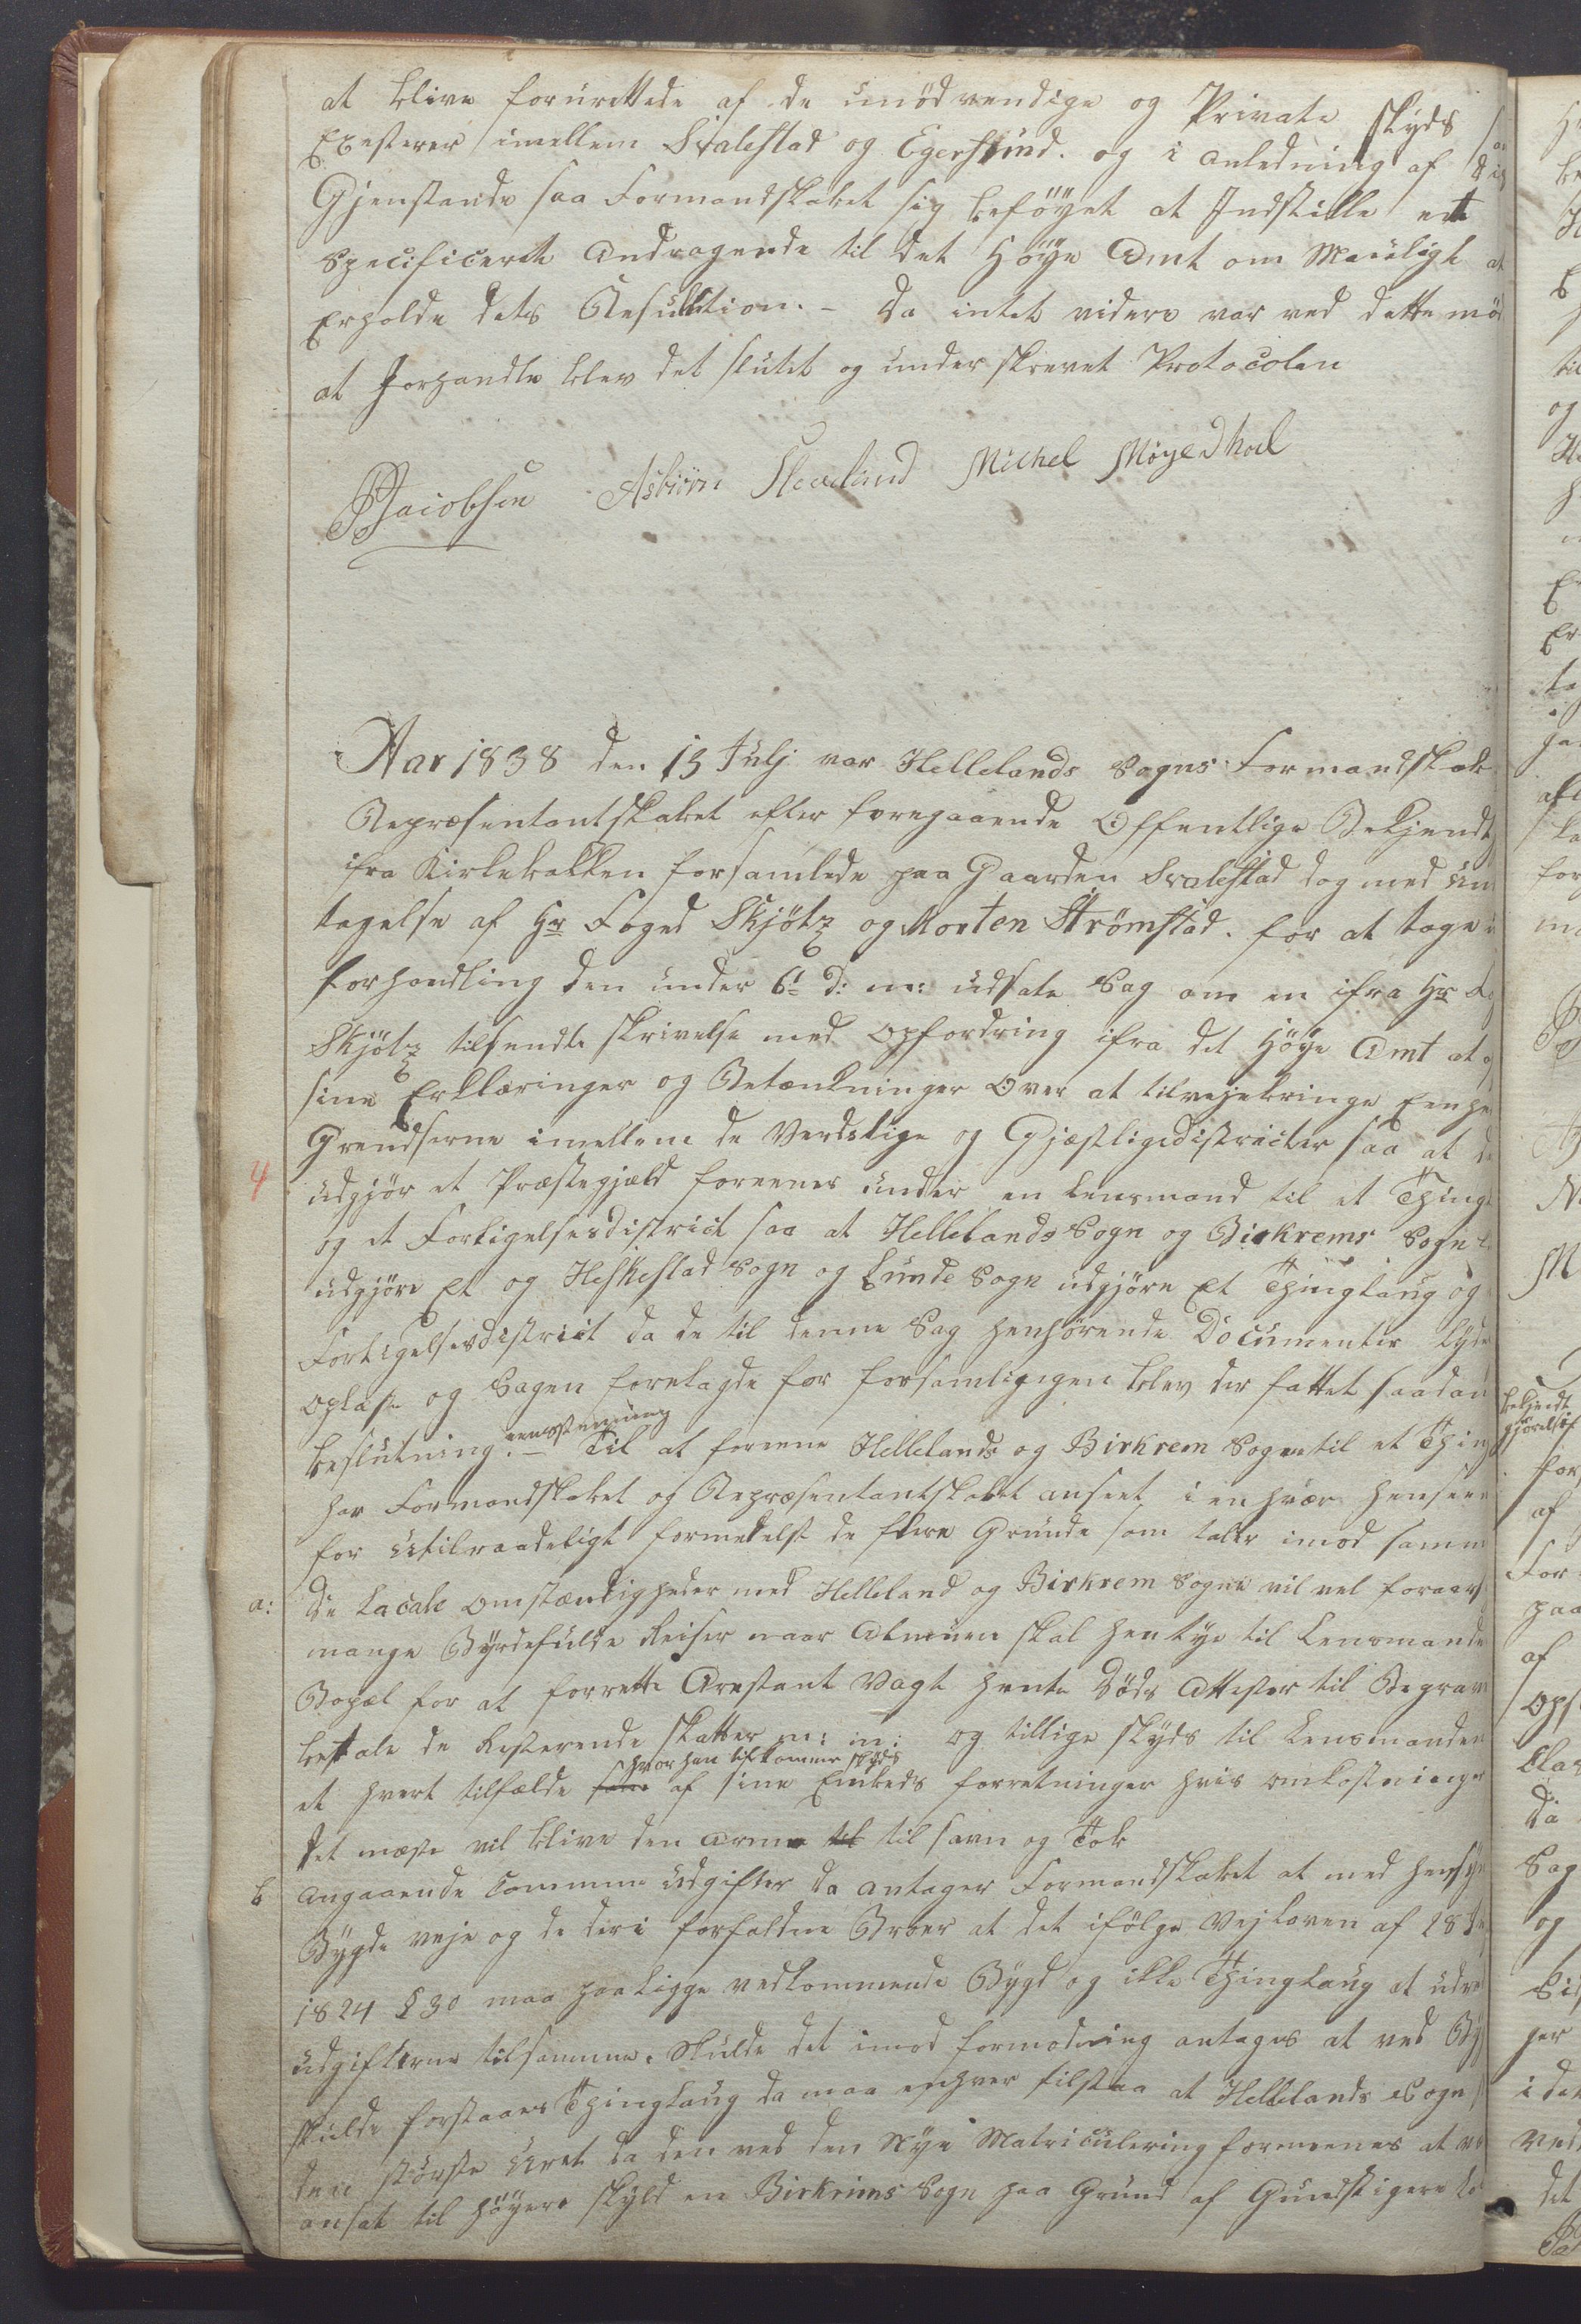 at blive forurettede af de unödvendige og Private skyds
Exesterer imellem Svalestad og Egersund. og i anledning af
Gjenstande saa Formandskabet sig beföyet at Indstille ett
Specificeret Andragende til det Höye Amt om Mueligt at
Erholde dets Resulution. – Da intet videre var ved dette mö
at Forhandle blev det slutet og underskrevet Protocolen
PJacobsen Asbiörn Sleveland Michel Möyedhoel
Aar 1838 den 13 Julj var Hellelands Sogns Formandskab
Repræsentantskabet efter foregaaende Offentlige Bekjendt
ifra Kirkebakken forsamlede paa Gaarden Svalestad dog med Un
tagelse af Hr Foged Skjötz og Morten Strömstad. for at tage i
forhandling den under 6te d: m: udsate Sag om en ifra Hr Fo
Skjötz tilsendte skrivelse med opfordring ifra det Höye Amt at
sine Erklæringer og Betænkninger Over at tilvejebringe Eenhe
Grendserne imellem de Verdslige og Gjestligedistricter saa at de
4
udgjör et Præstegjeld foreenes under en Lensmand til et Thing
og et Forligelsesdistrict saa at Hellelands Sogn og Birkrems Sogn
udgjöre Et og Heskestad Sogn og Lunde Sogn udgjöre Et Thinglaug og
Forligelsesdistrict da de til denne Sag henhörende Documenter lyde
oplæst og Sagen forelagde for forsamligigen blev der fattet saadan
eenstemmig
beslutning. – Til at foreene Hellelands og Birkrem Sogne til et Thing
har Formandskabet og Repræsentantskabet anseet i enhver henseen
for utilraadeligt formedelst de flere Grunde som taler imod samme
a: De Locale omstændigheder med Helleland og Birkrem Sogne vil vel foraars
mange Byrdefulde Reiser naar Almuen skal hentye til Lensmande
Bopæl for at forrette Arestant Vagt hente Döds Attester til Begrav
betale de Resterende skatter m: m: og tillige skyds til Lensmanden
hvor han tilkommer skyds
et hvert tilfælde af sine Embeds forretninger hvis omkostninger
det mæste vil blive den Arme til til savn og Tab
b angaaende Commune udgifter da antager Formandskabet at med hensyn
Bygde veje og de deri forfaldne Broer at det ifölge Vejloven af 28 Ju
1824 § 30 maa paaligge vedkommende Bygd og ikke Thinglaug at udre
udgifterne tilsamme. Skulde det imod formodning antages at ved By
skulde forstaaes Thinglaug da maa enhver tilstaa at Hellelands Sogn
den störste Uret da den ved den Nye Matriculering formeenes at væ
ansat til höyere skyld en Birkrims Sogn paa Grund af Gundstigere
bekjendt
gjörelse